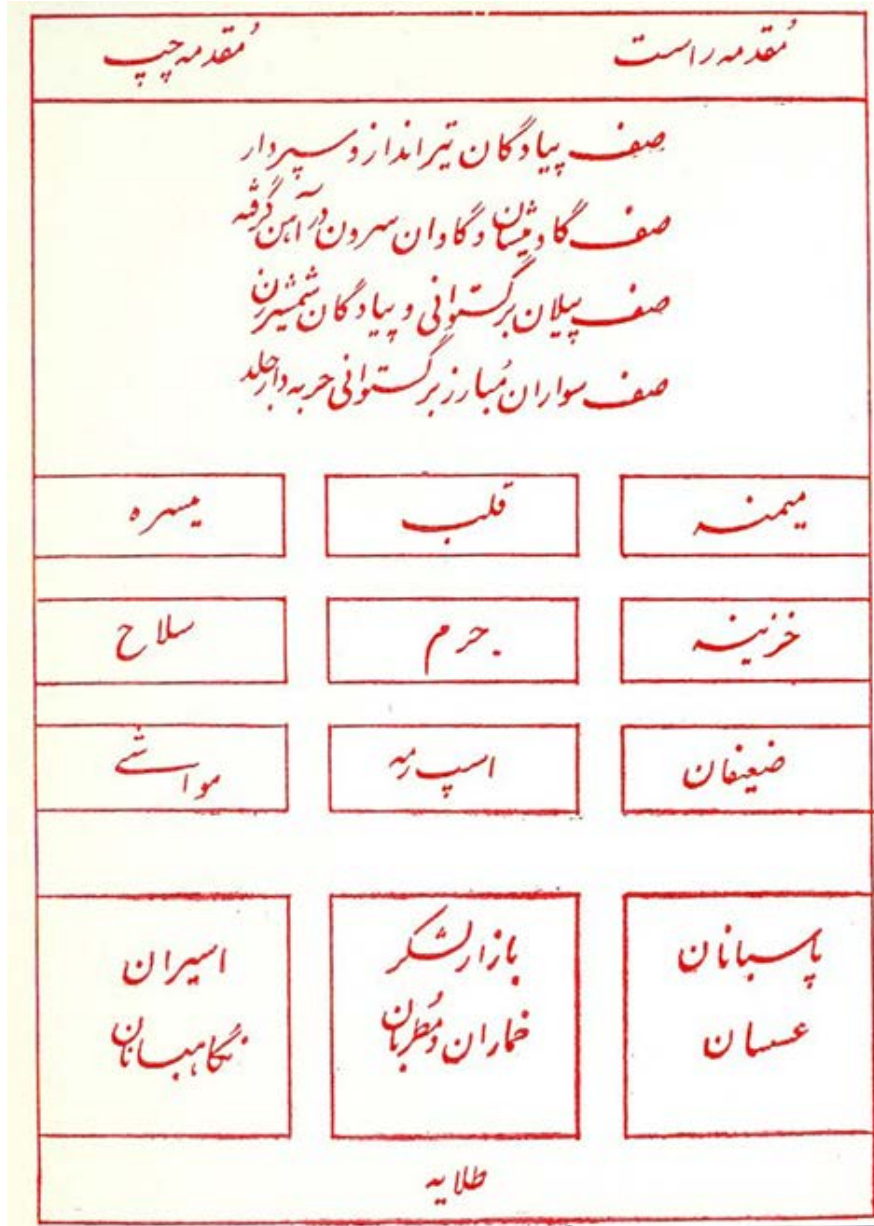 مُقدمه راست
مُقدمه چپ
صف پیادگان تیرانداز و سپردار
صف گاومیشان و گاوان سرون در آهن گرفته
صف پیلان برگستوانی و پیادگان شمشیرزن
صف سواران مُبارز برگستوانی حربه دار جلد
میمنه
قلب
میسره
خزینه
حرم
سلاح
ضعیفان
اسپ رمه
مواشی
پاسبانان
عسسان
بازار لشکر
خماران و مُطربان
اسیران
نگاهبانان
طلایه